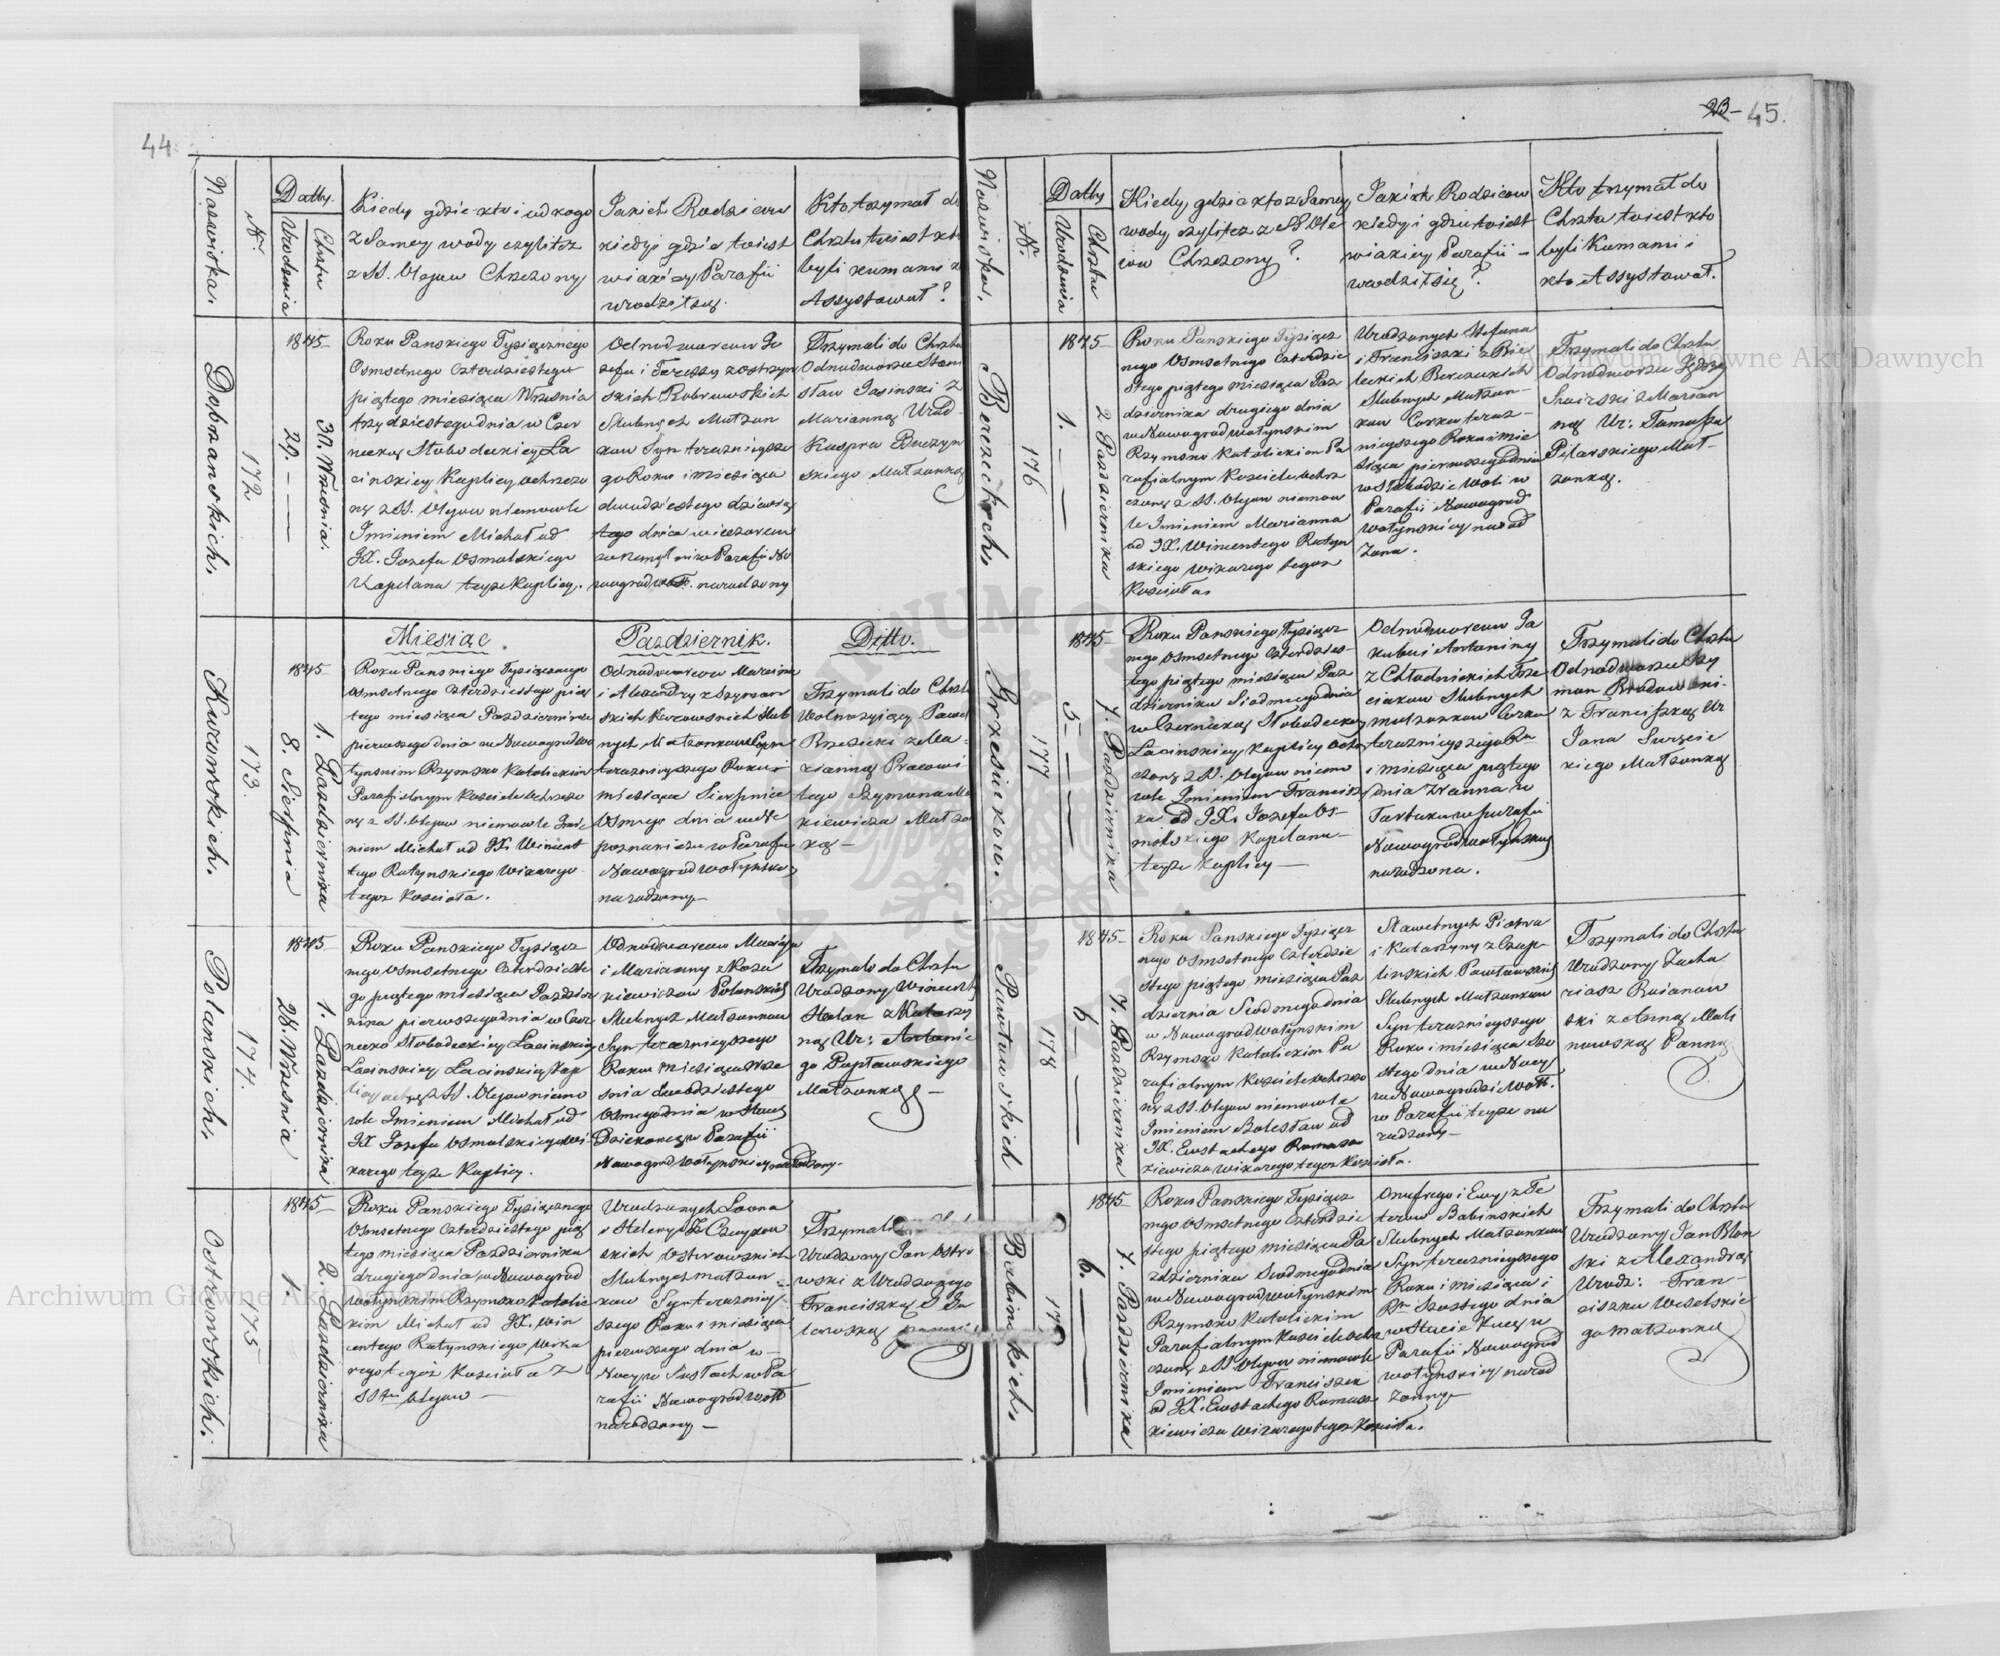 44
Nazwiska.
№
Datty.
Urodzenia
Chrztu
Kiedy gdzie kto i od kogo
z Samey wody czyli też
z SS. Olejow Chrzczony
Jakich Rodzicow
kiedy i gdzie tudziesz
w iakiey Parafii
urodził się.
Kto trzymał do
Chrztu tudziesz kto
byli kumami i
Assystował?
Dobrzanskich.
172.
1845
29.
30. Września.
Roku Panskiego Tysiącznego
Osmsetnego Czterdziestego
piątego miesiąca Września
trzydziestego dnia w Czer
neckoy Słobodeckiey La
cinskiey Kaplicy ochrzczo
ny z SS. Olejow niemowle
Imieniem Michał od
JX. Jozefa Osmolskiego
Kapelana teyże Kaplicy.
Odnodworcow Jo
zefa i Teressy z Ostrzyn
skich Dobrzanskich
Slubnych Małżon
kow Syn teraznieysze
go Roku i miesiąca
dwudziestego dziewią
tego dnia wieczorem
w Parafii No
wogradwoł. narodzony
Trzymali do Chrztu
Odnodworzec Stani
sław Jasinski z
Marianną Urod.
Kaspra Buczyn
skiego Małżonką
Miesiąc
Pazdziernik.
Ditto.
Kurowskich.
173.
1845
8. Sierpnia
1. Pazdziernika
Roku Panskiego Tysiącznego
Osmsetnego Czterdziestego pią
tego miesiąca Pazdziernika
pierwszego dnia w Nowogradwo
łynskim Rzymsko Katolickim
Parafialnym Kosciele ochrzczo
ny z SS. Olejow niemowle Imie
niem Michał od JX. Wincen
tego Ratynskiego Wikarego
tegoż Koscioła.
Odnodworcow Marcina
i Alexandry z Szyman
skich Kurowskich Slub
nych Małżonkow Syn
teraznieyszego Roku i
miesiąca Sierpnia
Osmego dnia w
poznaniczu w Parafii
Nowogradwołynskiey
narodzony
Trzymali do Chrztu
Wolnożyiący Paweł
Brzezicki z Ma
rianną Pracowi
tego Szymona Ma
kiewicza Małżon
ką
Polanskich.
174.
1845
28. Września
1. Pazdziernika
Roku Panskiego Tysiącz
nego Osmsetnego Czterdzieste
go piątego miesiąca Pazdzier
nika pierwszego dnia w Czer
necko Słobodeckiey Lacinskiey
Lacinskiey Lacinskiey Kap
licy ochrz. z SS. Olejow niemo
wle Imieniem Michał od
JX Jozefa Osmolskiego Wi
karego teyże Kaplicy.
Odnodworcow Macieja
i Marianny z Roza
kiewiczow Polanskich
Slubnych Małżonkow
Syn teraznieyszego
Roku miesiąca Wrze
snia dwudziestego
Osmego dnia w Starey
w Parafii
Nowogradwołynskiey narodzony.
Trzymali do Chrztu
Urodzony Wincenty
Stolak z Katarzy
ną Ur: Antonie
go Pupławskiego
Małżonką
Ostrowskich.
175
1845
1.
2. Pazdziernika
Roku Panskiego Tysiącznego
Osmsetnego Czterdziestego pią
tego miesiąca Pazdziernika
drugiego dnia w Nowograd
wołynskim Rzymsko Katolic
kim Michał od JX. Win
centego Ratynskiego Wika
rego tegoż Koscioła z
SStu Olejow
Urodzonych Leona
i Heleny z Czaykow
skich Ostrowskich
Slubnych małżon
kow Syn terazniey
szego Roku i miesiąca
pierwszego dnia w
w Pa
rafii Nowogradwoł
narodzony
Trzymali
Urodzony Jan Ostro
wski z Urodzonego
Franciszką
45.
Nazwiska.
№.
Datty
Urodzenia
Chrztu
Kiedy, gdzie kto z Samey
wody czyli też z SS Ole
iow Chrzczony?
Jakich Rodzicow
kiedy i gdzie tudziesz
w iakiey Parafii
urodził się?
Kto trzymał do
Chrztu tudziesz kto
byli Kumami i
kto Assystował.
Berezeckich.
176
1845
1.
2 Pazdziernika
Roku Panskiego Tysiącz
nego Osmsetnego Czterdzie
stego piątego miesiąca Paz
dziernika drugiego dnia
w Nowogradwołynskim
Rzymsko Katolickim Pa
rafialnym Kosciele ochrz
czona z SS. Olejow niemow
le Imieniem Marianna
od JX. Wincentego Ratyn
skiego wikarego tegoż
Koscioła
Urodzonych Stefana
i Franciszki z Bie
leckich Berezeckich
Slubnych Małżon
kow Corka teraz
nieyszego Roku i mie
siąca pierwszego dnia
w Słobodzie Woli w
Parafii Nowograd
wołynskiey narod
zona.
Trzymali do Chrztu
Odnodworzec Jędrzey
Skwirski z Marian
ną Ur: Tomasza
Pilarskiego Mał
żonką.
Grzesiukow.
177
1845
5
7. Pazdziernika
Roku Panskiego Tysiącz
nego Osmsetnego Czterdzies
tego piątego miesiąca Paz
dziernika Siodmego dnia
w Czerneckoy Słobodeckiey
Lacinskiey Kaplicy ochrz
czona z SS. Olejow niemo
wle Imieniem Francisz
ka od JX. Jozefa Os
molskiego Kapelana
teyże Kaplicy
Odnodworcow Ja
kuba i Antoniny
z Chłodnickich Grze
siukow Slubnych
małżonkow Corka
teraznieyszego Ro
i miesiąca piątego
dnia zranna w
Tartaku w parafii
Nowogradwołynskiey
narodzona.
Trzymali do Chrztu
Odnodworzec Szy
mon
z Franciszką Ur
Jana
kiego Małżonką
Pawłowskich
178
1845
6
7. Pazdziernika
Roku Panskiego Tysiącz
nego Osmsetnego Czterdzie
stego piątego miesiąca Paz
dziernia Siodmego dnia
w Nowogradwołynskim
Rzymsko Katolickim Pa
rafialnym Kosciele ochrzczo
ny z SS. Olejow niemowle
Imieniem Bolesław od
JX. Eustachego Romasz
kiewicza wikarego tegoż Koscioła.
Sławetnych Piotra
i Katarzyny z Czap
linskich Pawłowskich
Slubnych Małżonkow
Syn teraznieyszego
Roku i miesiąca Szo
stego dnia
w Nowogrodzie Woł.
w Parafii teyże na
rodzony
Trzymali do Chrztu
Urodzony Zacha
riasz Roianow
ski z Anną Mali
nowską Panną
Babinskich.
1845
6.
7. Pazdziernika
Roku Panskiego Tysiącz
nego Osmsetnego Czterdzie
stego piątego miesiąca Pa
zdziernika Siodmego dnia
w Nowogradwołynskim
Rzymsko Katolickim
Parafialnym Kosciele ochrz
czony z SS. Olejow niemowle
Imieniem Franciszek
od JX. Eustachego Romasz
kiewicza Wikarego tegoż Koscioła.
Onufrego i Ewy z Te
terow Babinskich
Slubnych Małżonkow
Syn teraznieyszego
Roku i miesiąca i
Szostego dnia
w
Parafii Nowograd
wołynskiey narod
zony
Trzymali do Chrztu
Urodzony Jan Blon
ski z Alexandrą
Urodz: Fran
ciszka Wesolskie
go małżonką
Archiwum Główne Akt Dawnych
Archiwum Główne Akt Dawnych